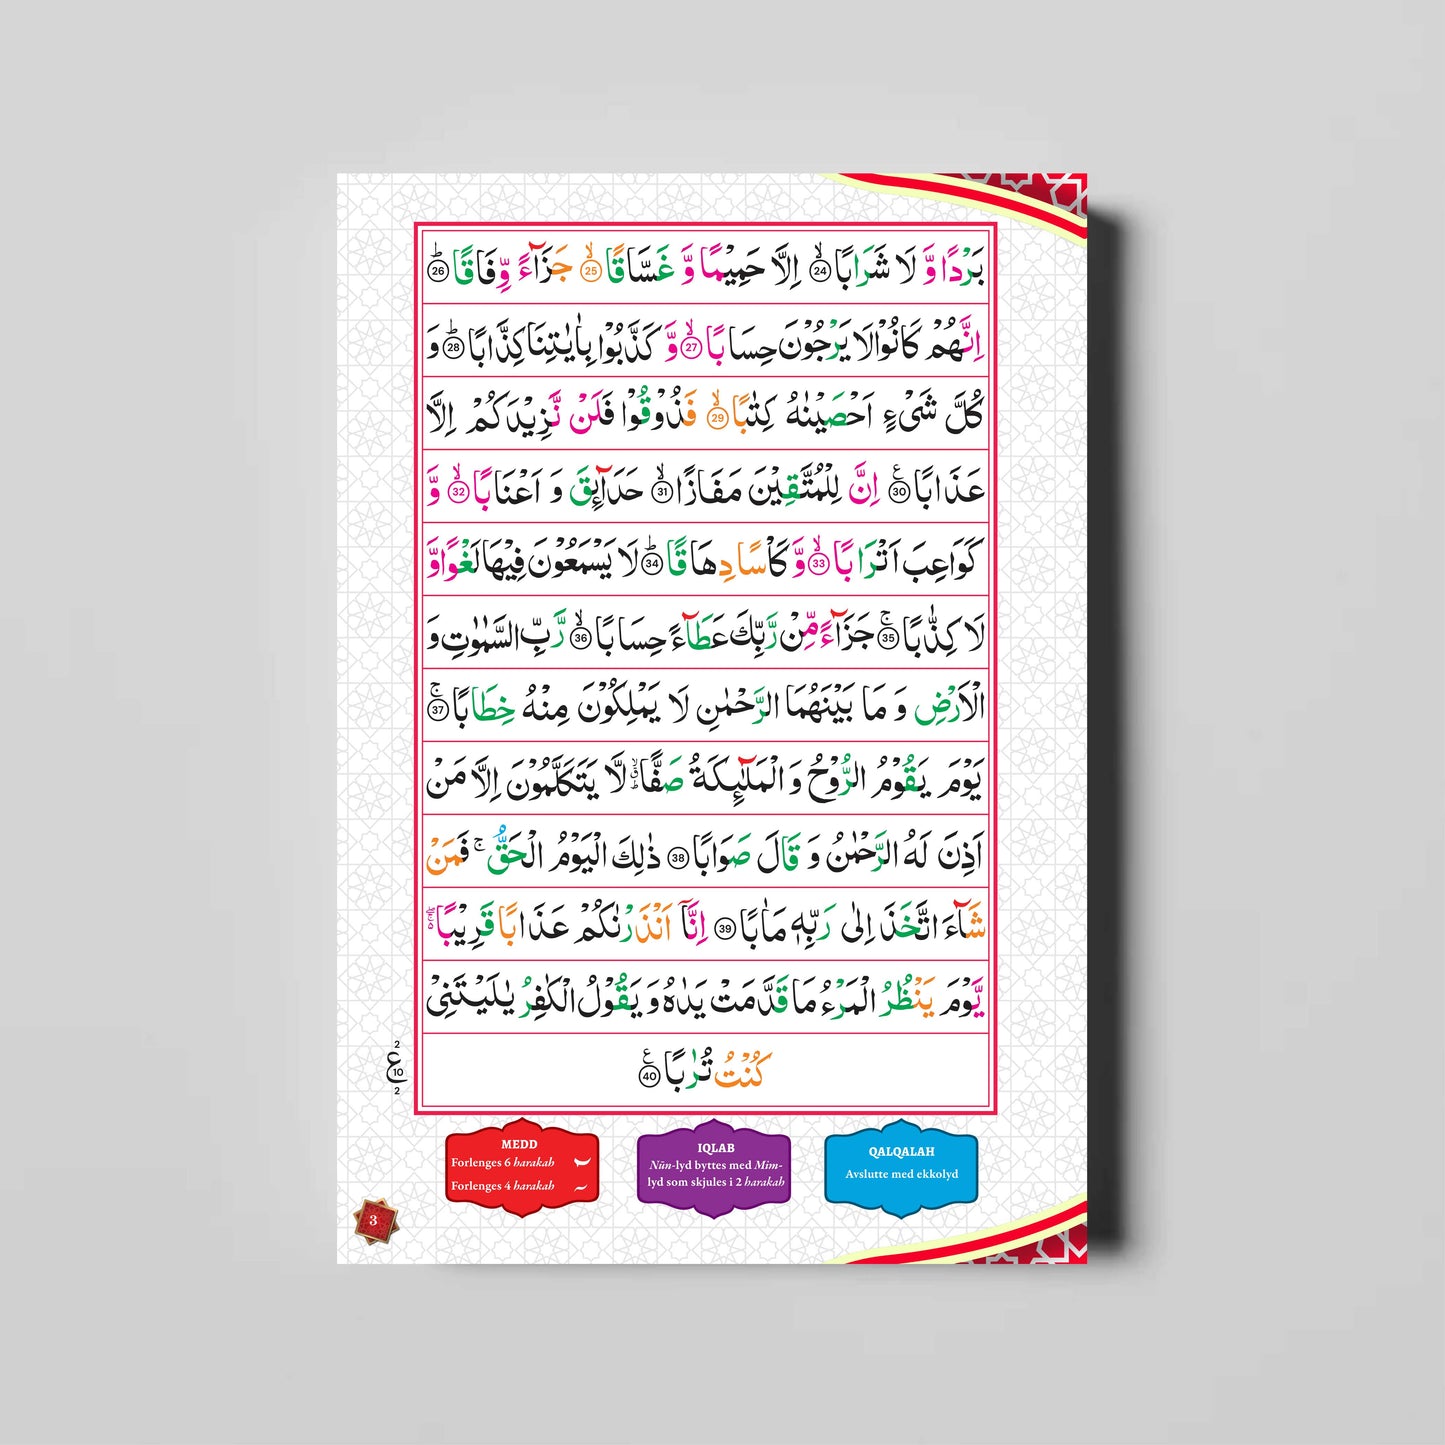 بَرْدًا وَّ لَا شَرَابًا ۙ﴿24﴾ اِلَّا حَمِيْمًا وَّ غَسَّاقًا ۙ﴿25﴾ جَزَآءً وِّفَاقًا ؕ﴿26﴾
اِنَّهُمْ كَانُوْا لَا يَرْجُوْنَ حِسَابًا ۙ﴿27﴾ وَّ كَذَّبُوْا بِاٰيٰتِنَا كِذَّابًا ؕ﴿28﴾ وَ
كُلَّ شَيْءٍ اَحْصَيْنٰهُ كِتٰبًا ۙ﴿29﴾ فَذُوْقُوْا فَلَنْ نَّزِيْدَكُمْ اِلَّا
عَذَابًا ﴿30﴾ ع اِنَّ لِلْمُتَّقِيْنَ مَفَازًا ۙ﴿31﴾ حَدَآئِقَ وَ اَعْنَابًا ۙ﴿32﴾ وَّ
كَوَاعِبَ اَتْرَابًا ۙ﴿33﴾ وَّ كَاْسًا دِهَاقًا ؕ﴿34﴾ لَا يَسْمَعُوْنَ فِيْهَا لَغْوًا وَّ
لَا كِذّٰبًا ۚ﴿35﴾ جَزَآءً مِّنْ رَّبِّكَ عَطَآءً حِسَابًا ۙ﴿36﴾ رَّبِّ السَّمٰوٰتِ وَ
الْاَرْضِ وَ مَا بَيْنَهُمَا الرَّحْمٰنِ لَا يَمْلِكُوْنَ مِنْهُ خِطَابًا ۚ﴿37﴾
يَوْمَ يَقُوْمُ الرُّوْحُ وَ الْمَلٰٓئِكَةُ صَفًّا لَّا يَتَكَلَّمُوْنَ اِلَّا مَنْ
اَذِنَ لَهُ الرَّحْمٰنُ وَ قَالَ صَوَابًا ﴿38﴾ ذٰلِكَ الْيَوْمُ الْحَقُّ ۚ فَمَنْ
شَآءَ اتَّخَذَ اِلٰى رَبِّهٖ مَاٰبًا ﴿39﴾ اِنَّاۤ اَنْذَرْنٰكُمْ عَذَابًا قَرِيْبًا
يَّوْمَ يَنْظُرُ الْمَرْءُ مَا قَدَّمَتْ يَدٰهُ وَ يَقُوْلُ الْكٰفِرُ يٰلَيْتَنِيْ
كُنْتُ تُرٰبًا ﴿40﴾ ع
2
ع 10
2
MEDD
Forlenges 6 harakah
Forlenges 4 harakah
IQLAB
Nūn-lyd byttes med Mim-
lyd som skjules i 2 harakah
QALQALAH
Avslutte med ekkolyd
3